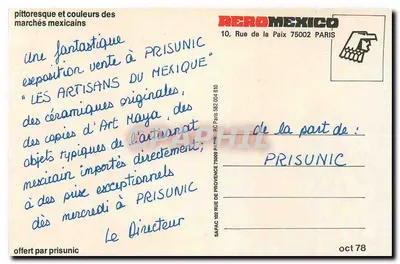 pittoresque et couleurs des
marchés mexicains
Une fantastique
exposition vente à PRISUNIC
"LES ARTISANS DU MEXIQUE"
des céramiques originales,
des copies d'Art Maya, des
objets typiques de l'artisanat
mexicain importés directement,
à des prix exceptionnels
dès mercredi à PRISUNIC
Le Directeur
offert par prisunic
SAPAC 102 RUE DE PROVENCE 75009 RC Paris 582 004 810
AEROMEXICO
10, Rue de la Paix 75002 PARIS
de la part de :
PRISUNIC
oct 78